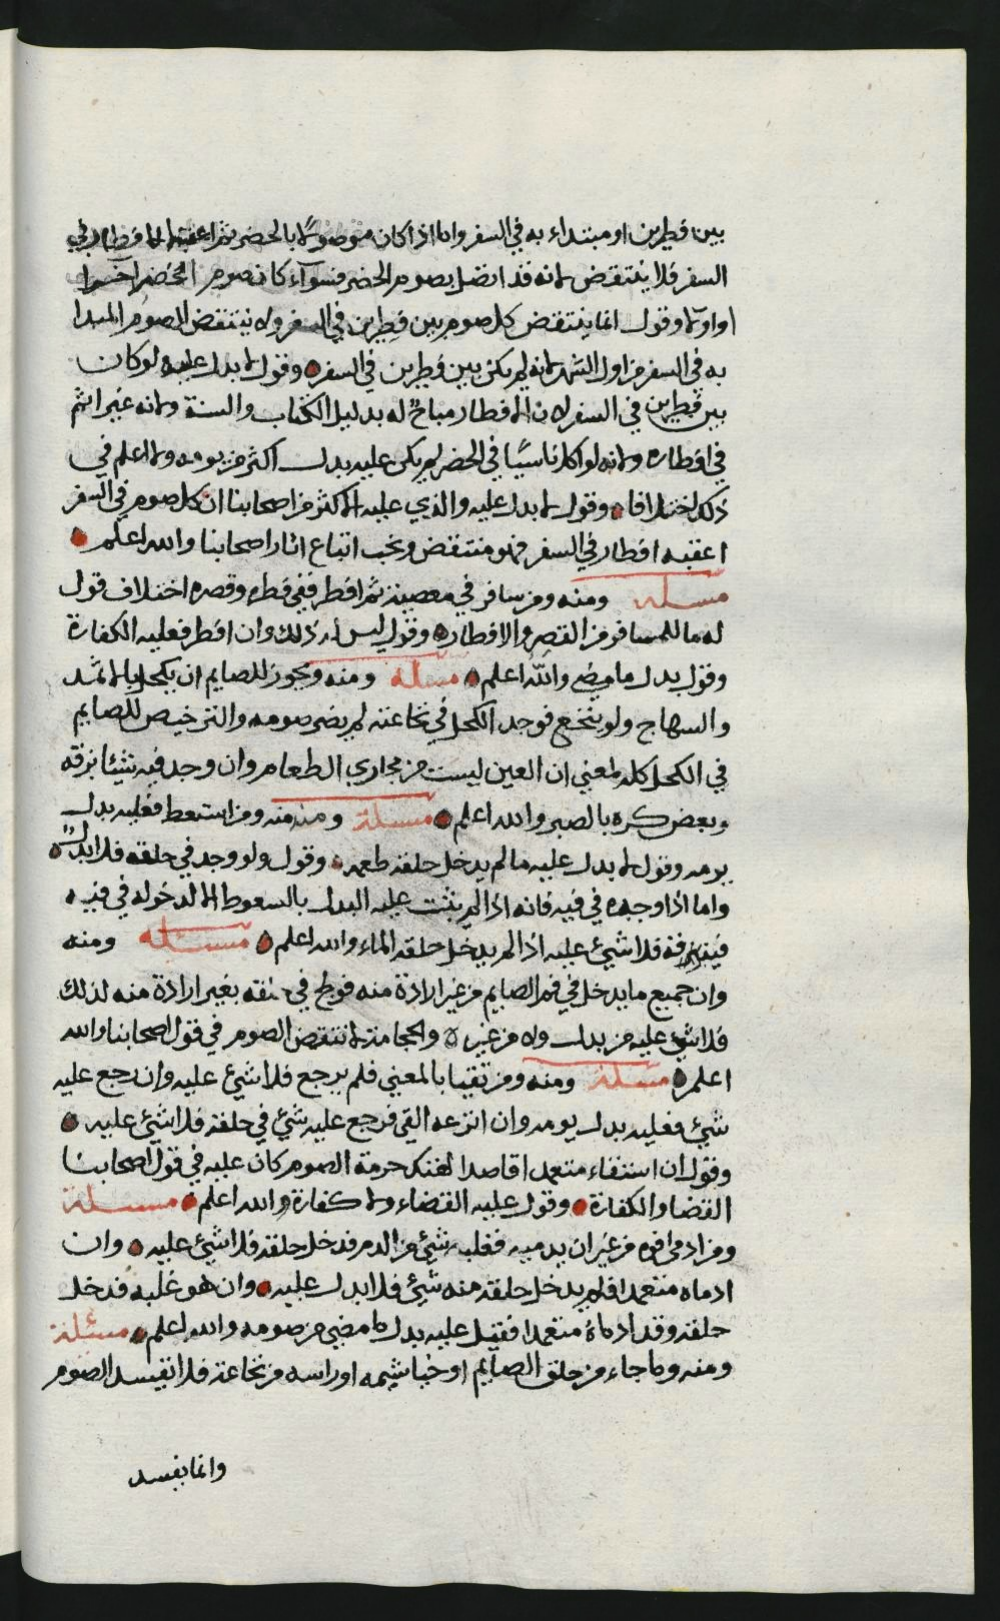 بين فطرين او مبتداء به في السفر واما اذا كان موصولا بالحضر ثم اعقبه الافطار في
السفر فلا ينتقض لانه قد اتصل بصوم الحضر فسوآء كان صوم الحضر آخرا
او اولا وقول انما ينتقض كل صوم بين فطرين في السفر ولا ينتقض الصوم المبدا
به في السفر من اول الشهر لانه لم يكن بين فطرين في السفر وقول لا بدل عليه ولو كان
بين فطرين في السفر لان الافطار مباح له بدليل الكتاب والسنة ولانه غير اثم
في افطاره ولانه لو اكل ناسيًا في الحضر لم يكن عليه بدل اكثر من يومه ولا اعلم في
ذلك اختلافا وقول لا بدل عليه والذي عليه الاكثر من اصحابنا ان كل صوم في السفر
اعقبه افطار في السفر فهو منتقض ونحب اتباع اثار اصحابنا والله اعلم
مسئلة ومنه ومن سافر في معصية ثم افطر ففي فطره وقصره اختلاف قول
له ما للمسافر من القصر والافطار وقول ليس له ذلك وان افطر فعليه الكفارة
وقول بدل ما مضى والله اعلم مسئلة ومنه ويجوز للصايم ان يكتحل بالاثمد
والسهاج ولو تنخع فوجد الكحل في نخاعته لم يضر صومه والترخيص للصايم
في الكحل كله لمعنى ان العين ليست من مجاري الطعام وان وجد فيه شيئا بزقه
وبعض كره بالصبر والله اعلم مسئلة ومنه ومن استعط فعليه بدل
يومه وقول لا بدل عليه ما لم يدخل حلقه طعمه وقول ولو وجد في حلقه فلا بدل
واما اذا وجده في فيه فانه اذا لم يثبت عليه البدل بالسعوط الا لدخوله في فيه
فلا شيئ عليه اذا لم يدخل حلقه الماء والله اعلم مسئلة ومنه
وان جميع ما يدخل في فم الصايم من غير ارادة منه فولج في حلقه بغير ارادة منه لذلك
فلا شيئ عليه من بدل ولا من غيره والحجامة لا تنقض الصوم في قول اصحابنا والله
اعلم مسئلة ومنه ومن تقيا بالمعنى فلم يرجع فلا شيئ عليه وان رجع عليه
شيئ فعليه بدل يومه وان انزعه القي فرجع عليه شيئ في حلقه فلا شيئ عليه
وقول ان استقاء متعمدا قاصدا لهتك حرمة الصوم كان عليه في قول اصحابنا
القضا والكفارة وقول عليه القضاء ولا كفارة والله اعلم مسئلة
ومن ادمى فوه من غير ان يدميه فغلبه شيئ من الدم فدخل حلقه فلا شيئ عليه وان
ادماه متعمدا فلم يدخل حلقه منه شيئ فلا بدل عليه وان هو غلبه فدخل
حلقه وقد ادماه متعمدا فقيل عليه بدل ما مضى من صومه والله اعلم مسئلة
ومنه وما جاء من حلق الصايم او خياشيمه او راسه من نخاعة فلا تفسد الصوم
وانما يفسد